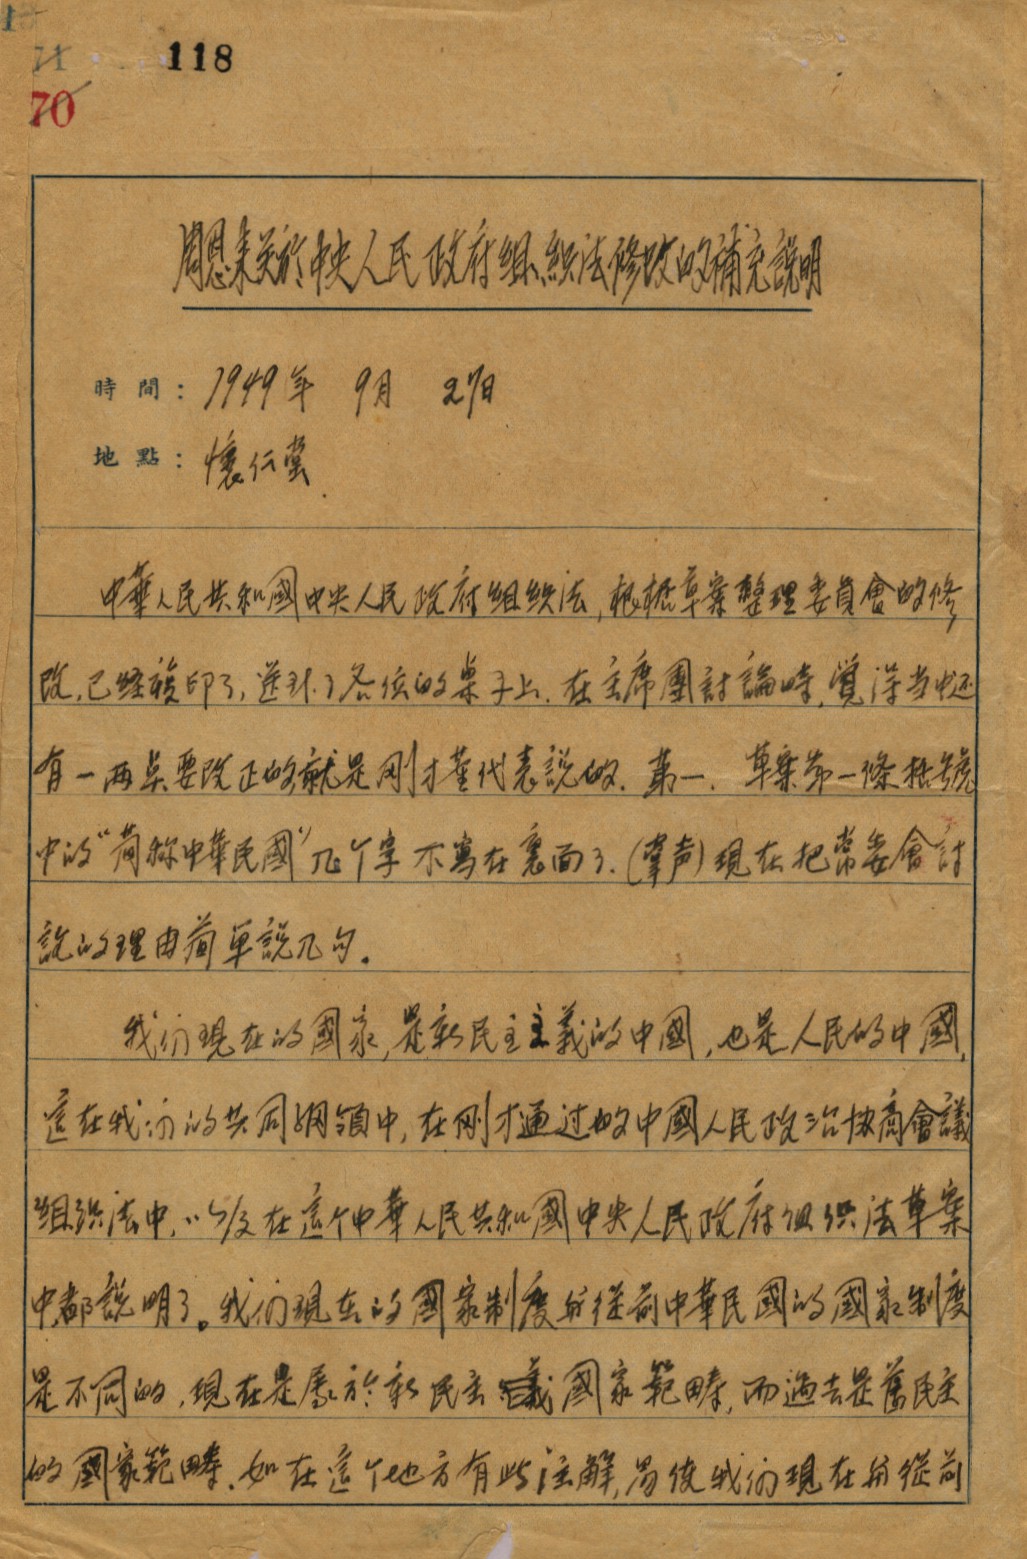 118
71
70
周恩来关於中央人民政府組織法修改的補充說明
時間：1949年 9月 27日
地點：懷仁堂
中華人民共和國中央人民政府組织法，根據草案整理委員會的修
改，已经複印了，送到了各位的桌子上．在主席團討論時，覺得当中还
有一两点要改正的就是刚才董代表說的．第一．草案第一條括號
中的“简称中華民國”几个字不寫在裏面了．(掌声)現在把常委會討
說的理由简單說几句。
我们現在的國家，是新民主主義的中國，也是人民的中國，
這在我们的共同綱領中，在刚才通过的中國人民政治协商會議
组织法中，以及在這个中華人民共和國中央人民政府组织法草案
中都說明了。我们現在的國家制度与從前中華民國的國家制度
是不同的，現在是屬於新民主義國家範疇，而過去是舊民主
的國家範疇．如在這个地方有此注解，易使我们現在与從前